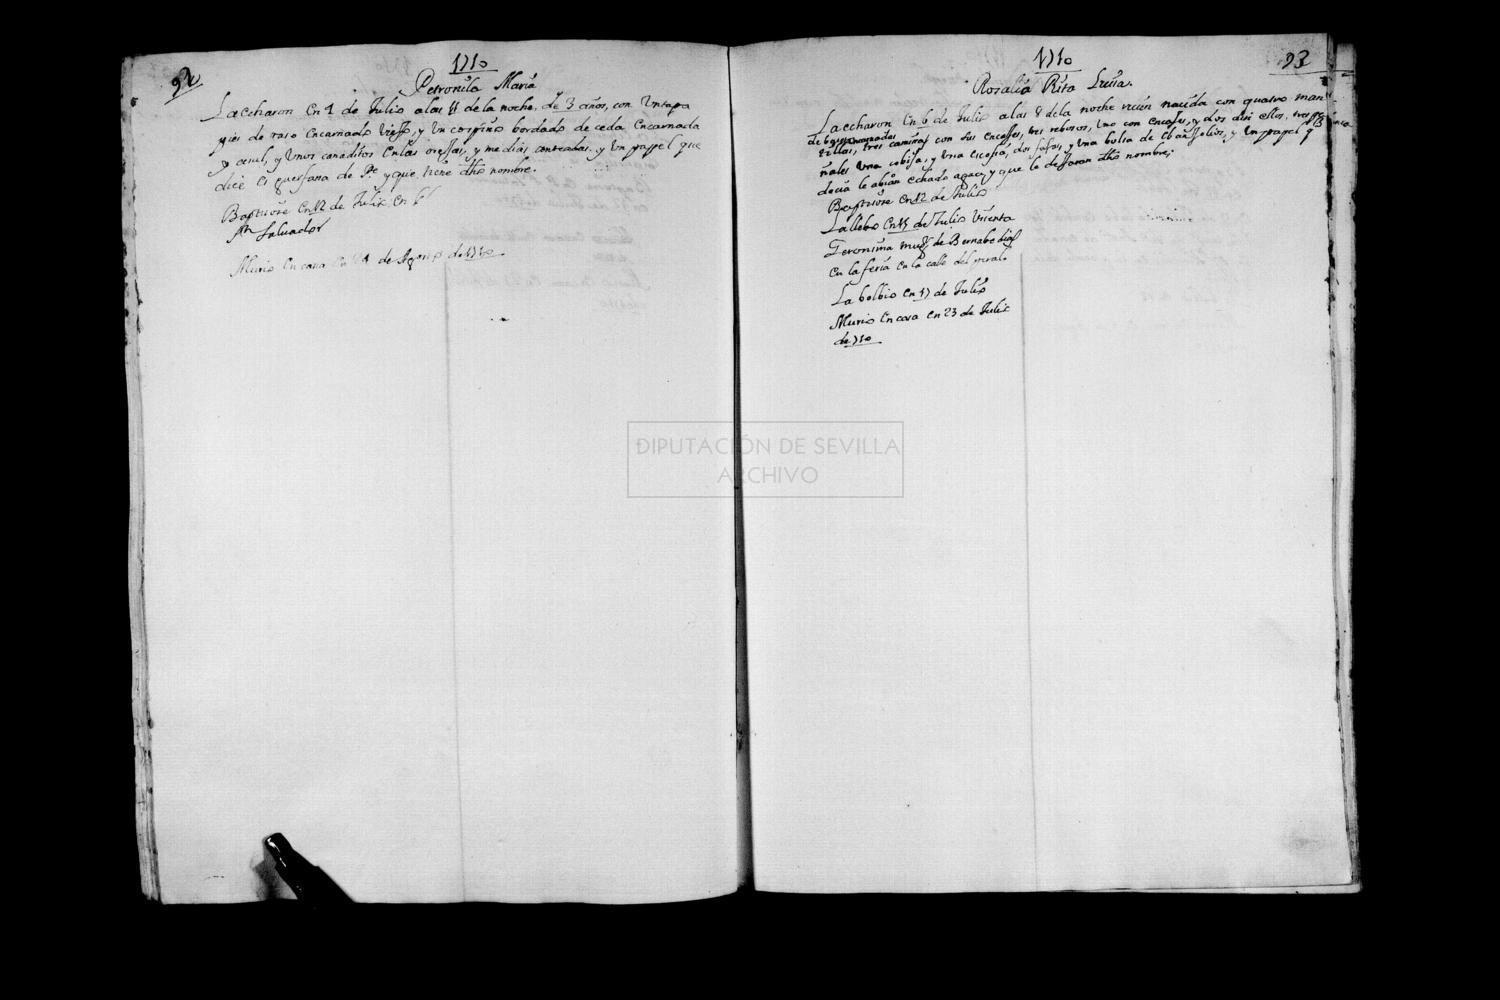 92
1710
Petronila Maria
La echaron en 1 de Julio a las 11 de la noche, de 3 años, con Un tapa
pies de raso encarnado viejo, y Un corpiño bordado de ceda encarnada
y asul, y Unos canaditos en las orejas, y medias coloradas. y Un papel que
dice es guerfana de Pe. y que tiene dho nombre.
Baptisose en 12 de Julio, en
Sn Salvador
Murio en casa en 24 de Agosto de 1710
1710
93
Rosalia Rita Luisa.
La echaron en 6 de Julio a las 8 de la noche recien nacida con quatro man
tillas, tres camisas con sus encajes, tres rebosos, Uno con encajes, y dos sin ellos, tres pa
ñales Una cobija, y Una escofia, dos fajas, y Una bolsa de evanjelios, y Un papel q
decia le abian echado agua, y que le dejaran dho nombre;
Baptisose en 12 de Julio
La llebo en 15 de Julio Vicenta
Geronima muger de Bernabe Dias
en la feria en la calle del peral
La bolbio en 17 de Julio
Murio en casa en 23 de Julio
de 1710
DIPUTACIÓN DE SEVILLA
ARCHIVO